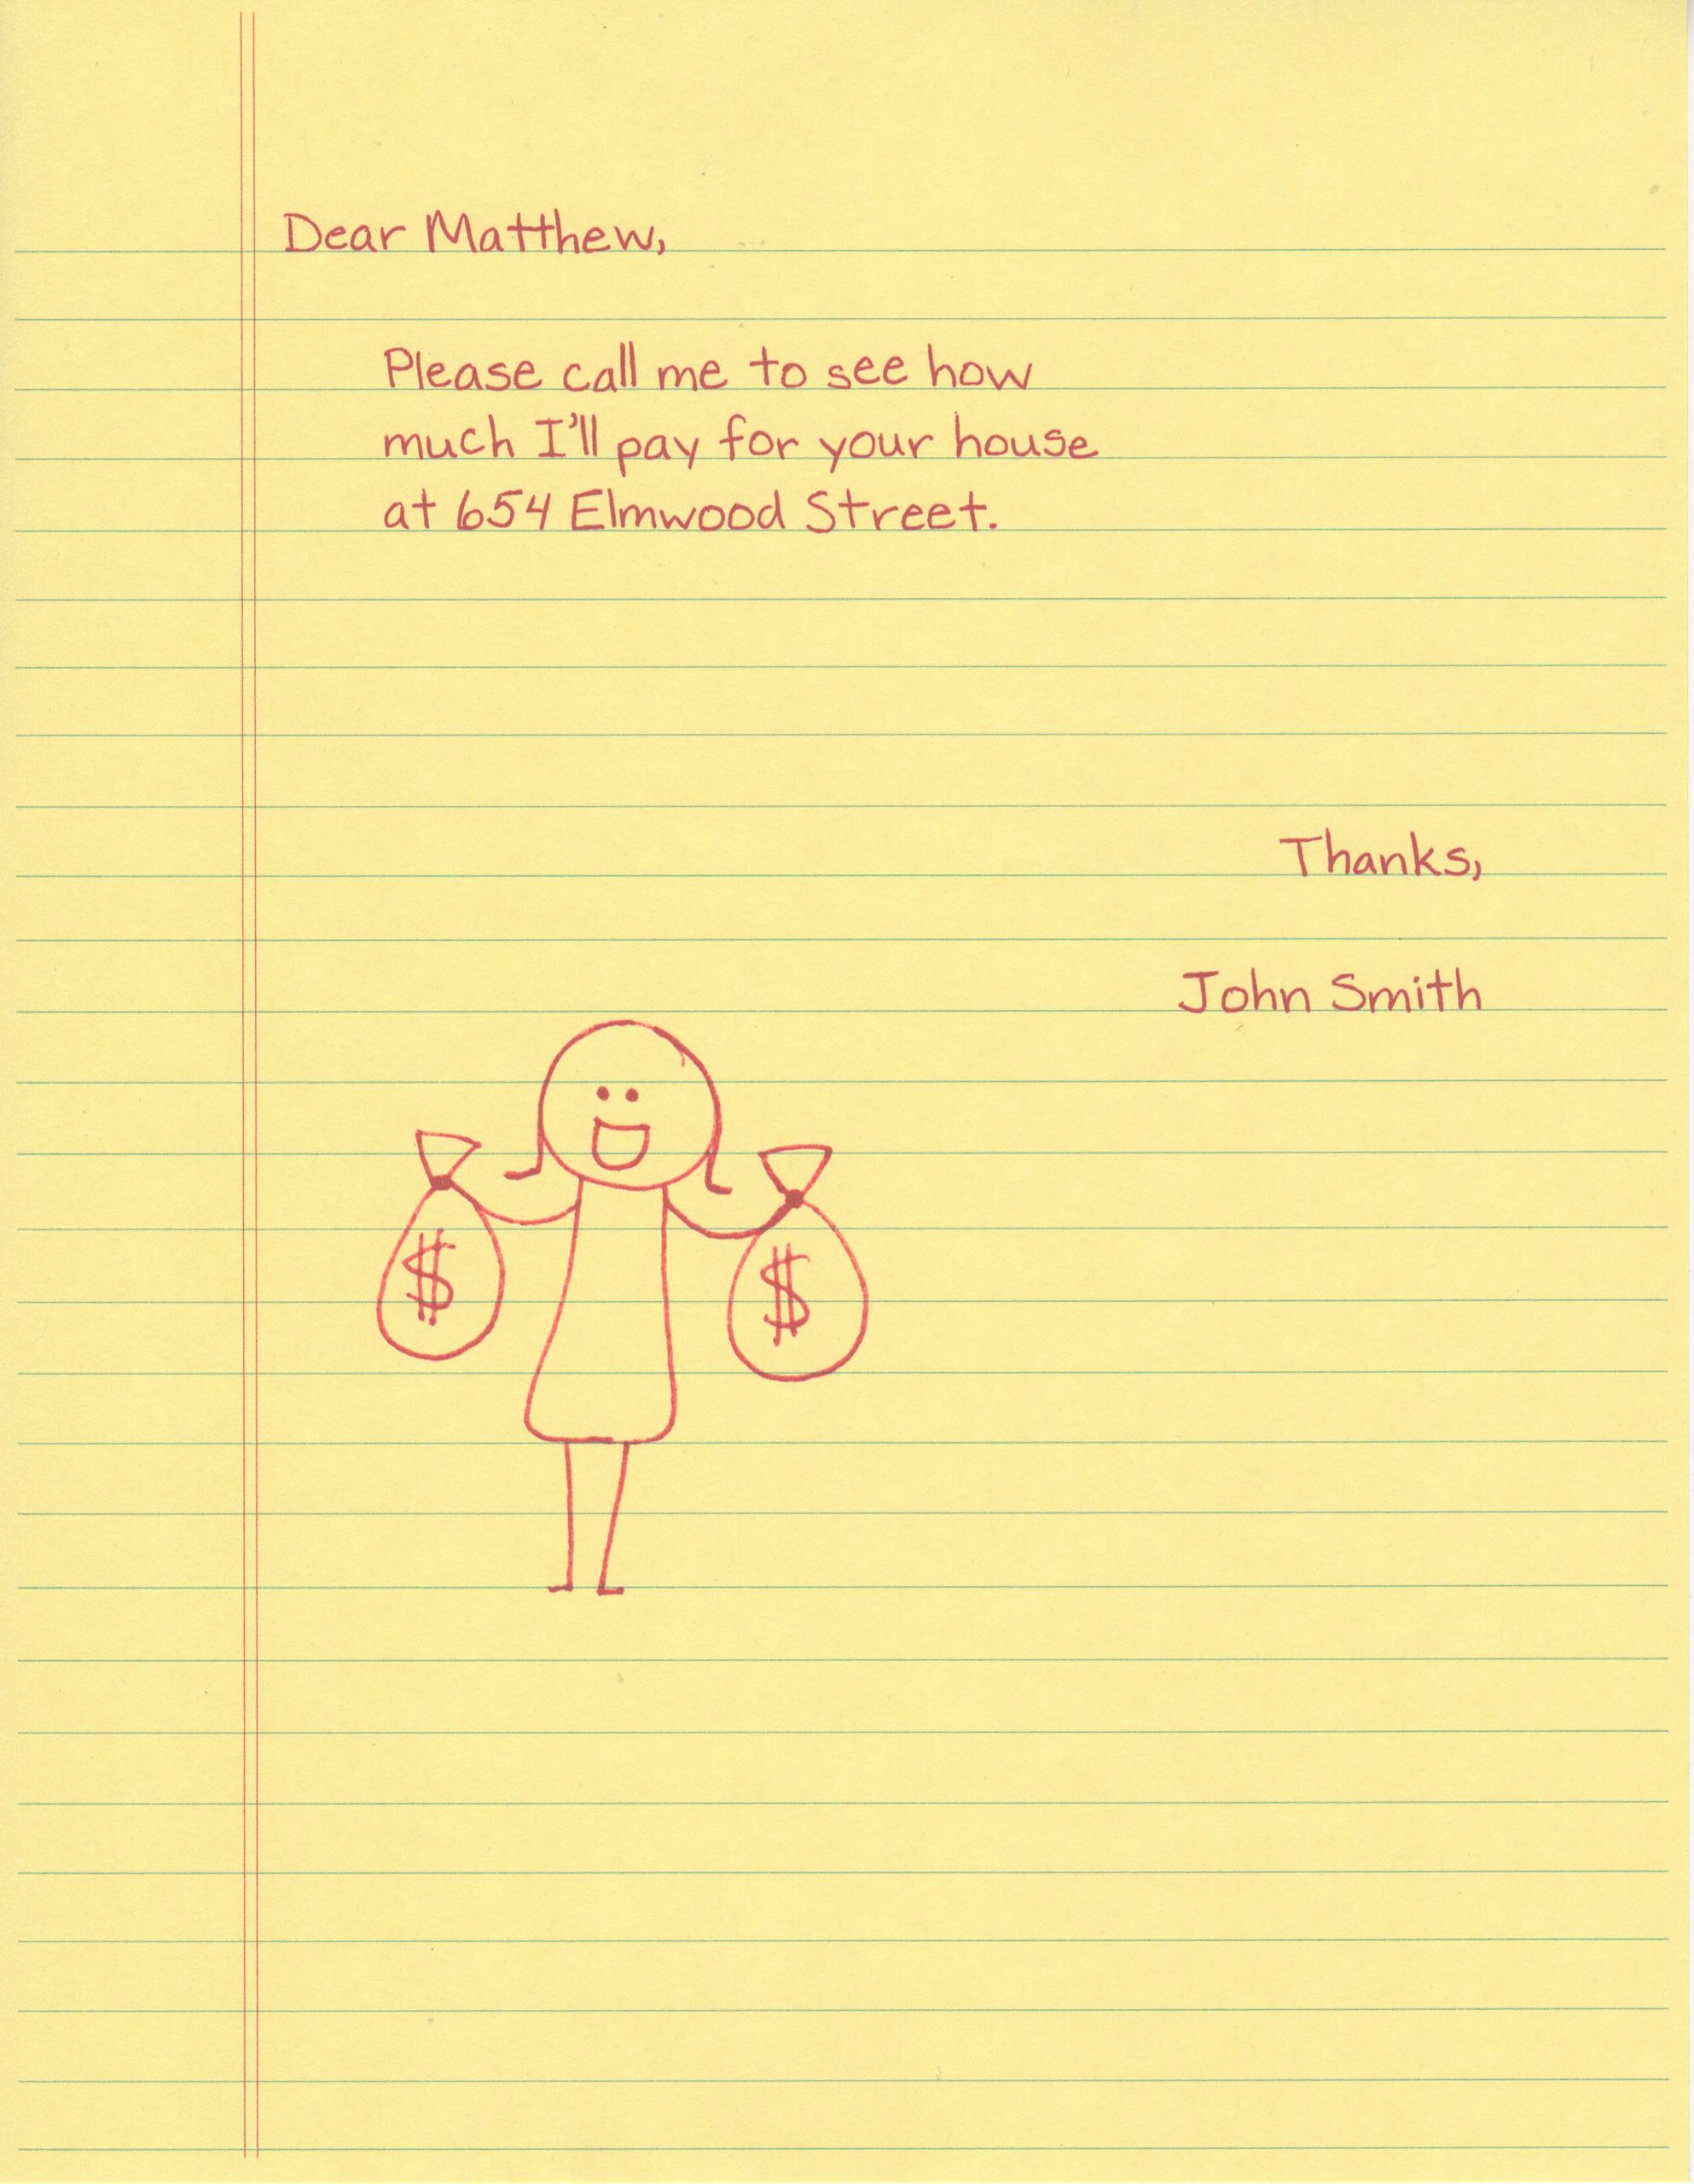 Dear Matthew,
Please call me to see how
much I'll pay for your house
at 654 Elmwood Street.
Thanks,
John Smith
$ $